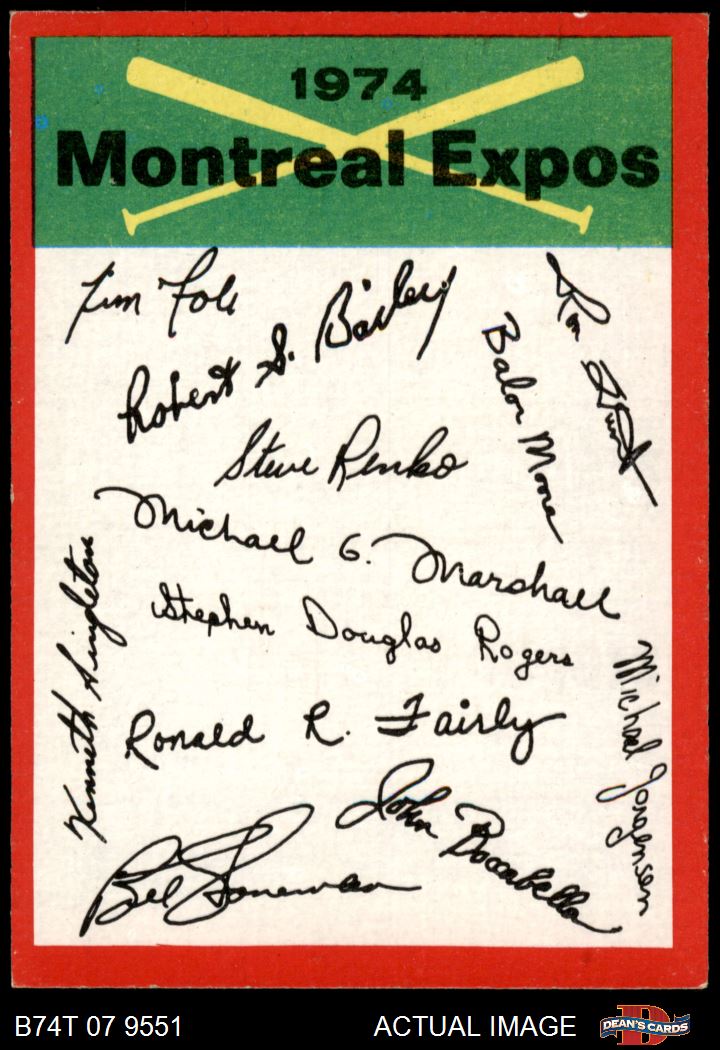 1974
Montreal Expos
Tim Foli
Robert S. Bailey
Ron Hunt
Balor Moore
Steve Renko
Michael G. Marshall
Stephen Douglas Rogers
Kenneth Singleton
Ronald R. Fairly
Michael Jorgensen
John Boccabella
Bill Stoneman
B74T 07 9551
ACTUAL IMAGE
D
DEAN'S CARDS